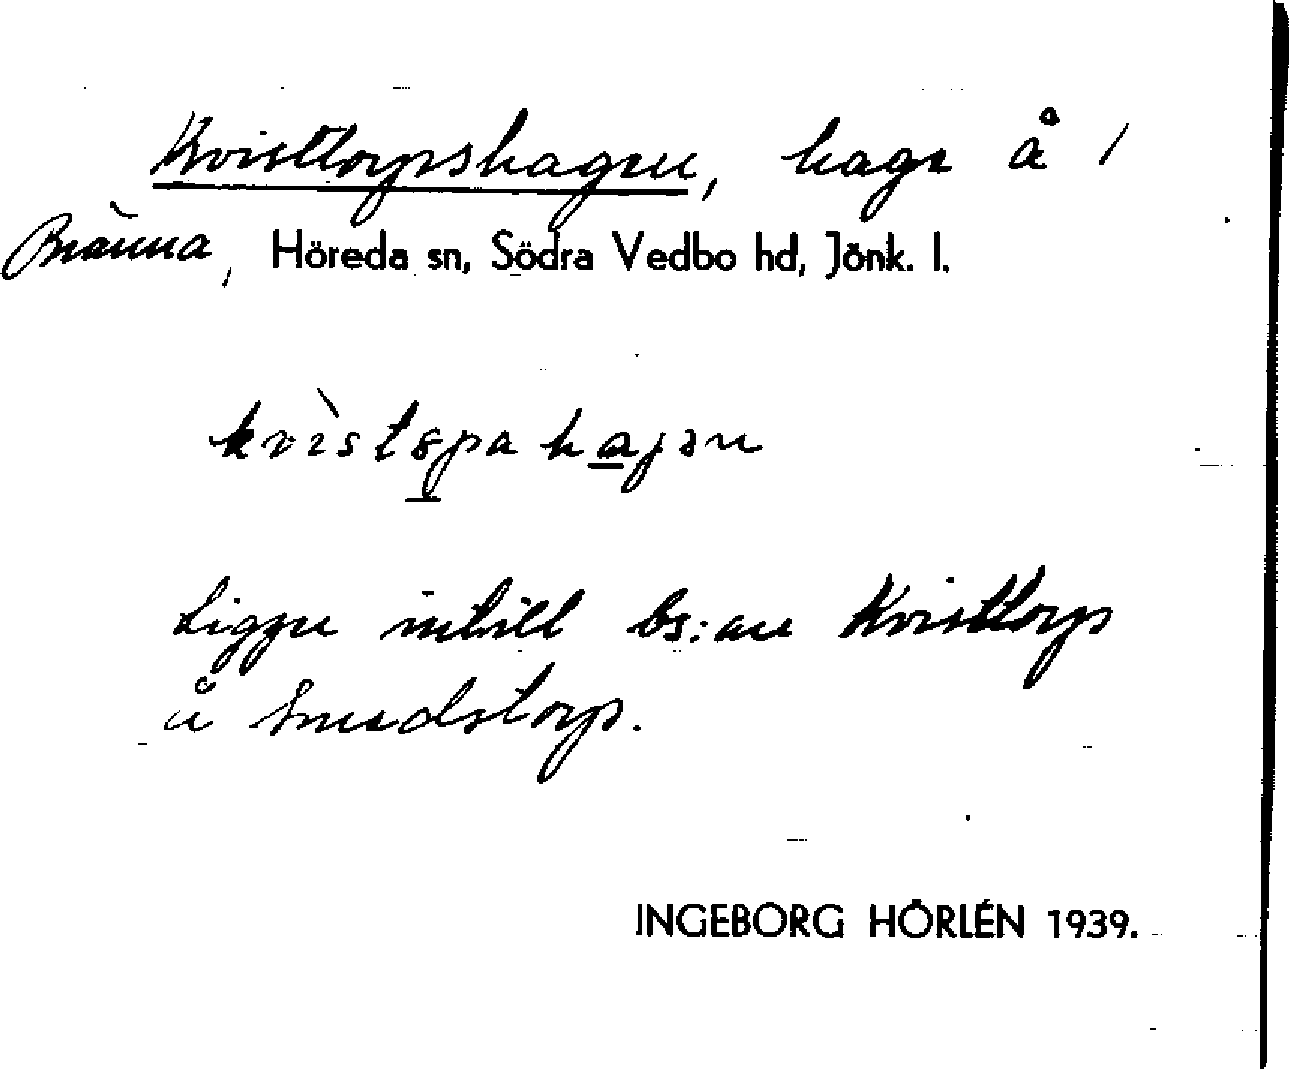 Kvisttorpshagen, hage å /
Bränna, Höreda sn, Södra Vedbo hd, Jönk. l.
kvìstɵpa hagən
Ligger intill bs:an Kvisttorp
å Smedstorp.
INGEBORG HÖRLÉN 1939.